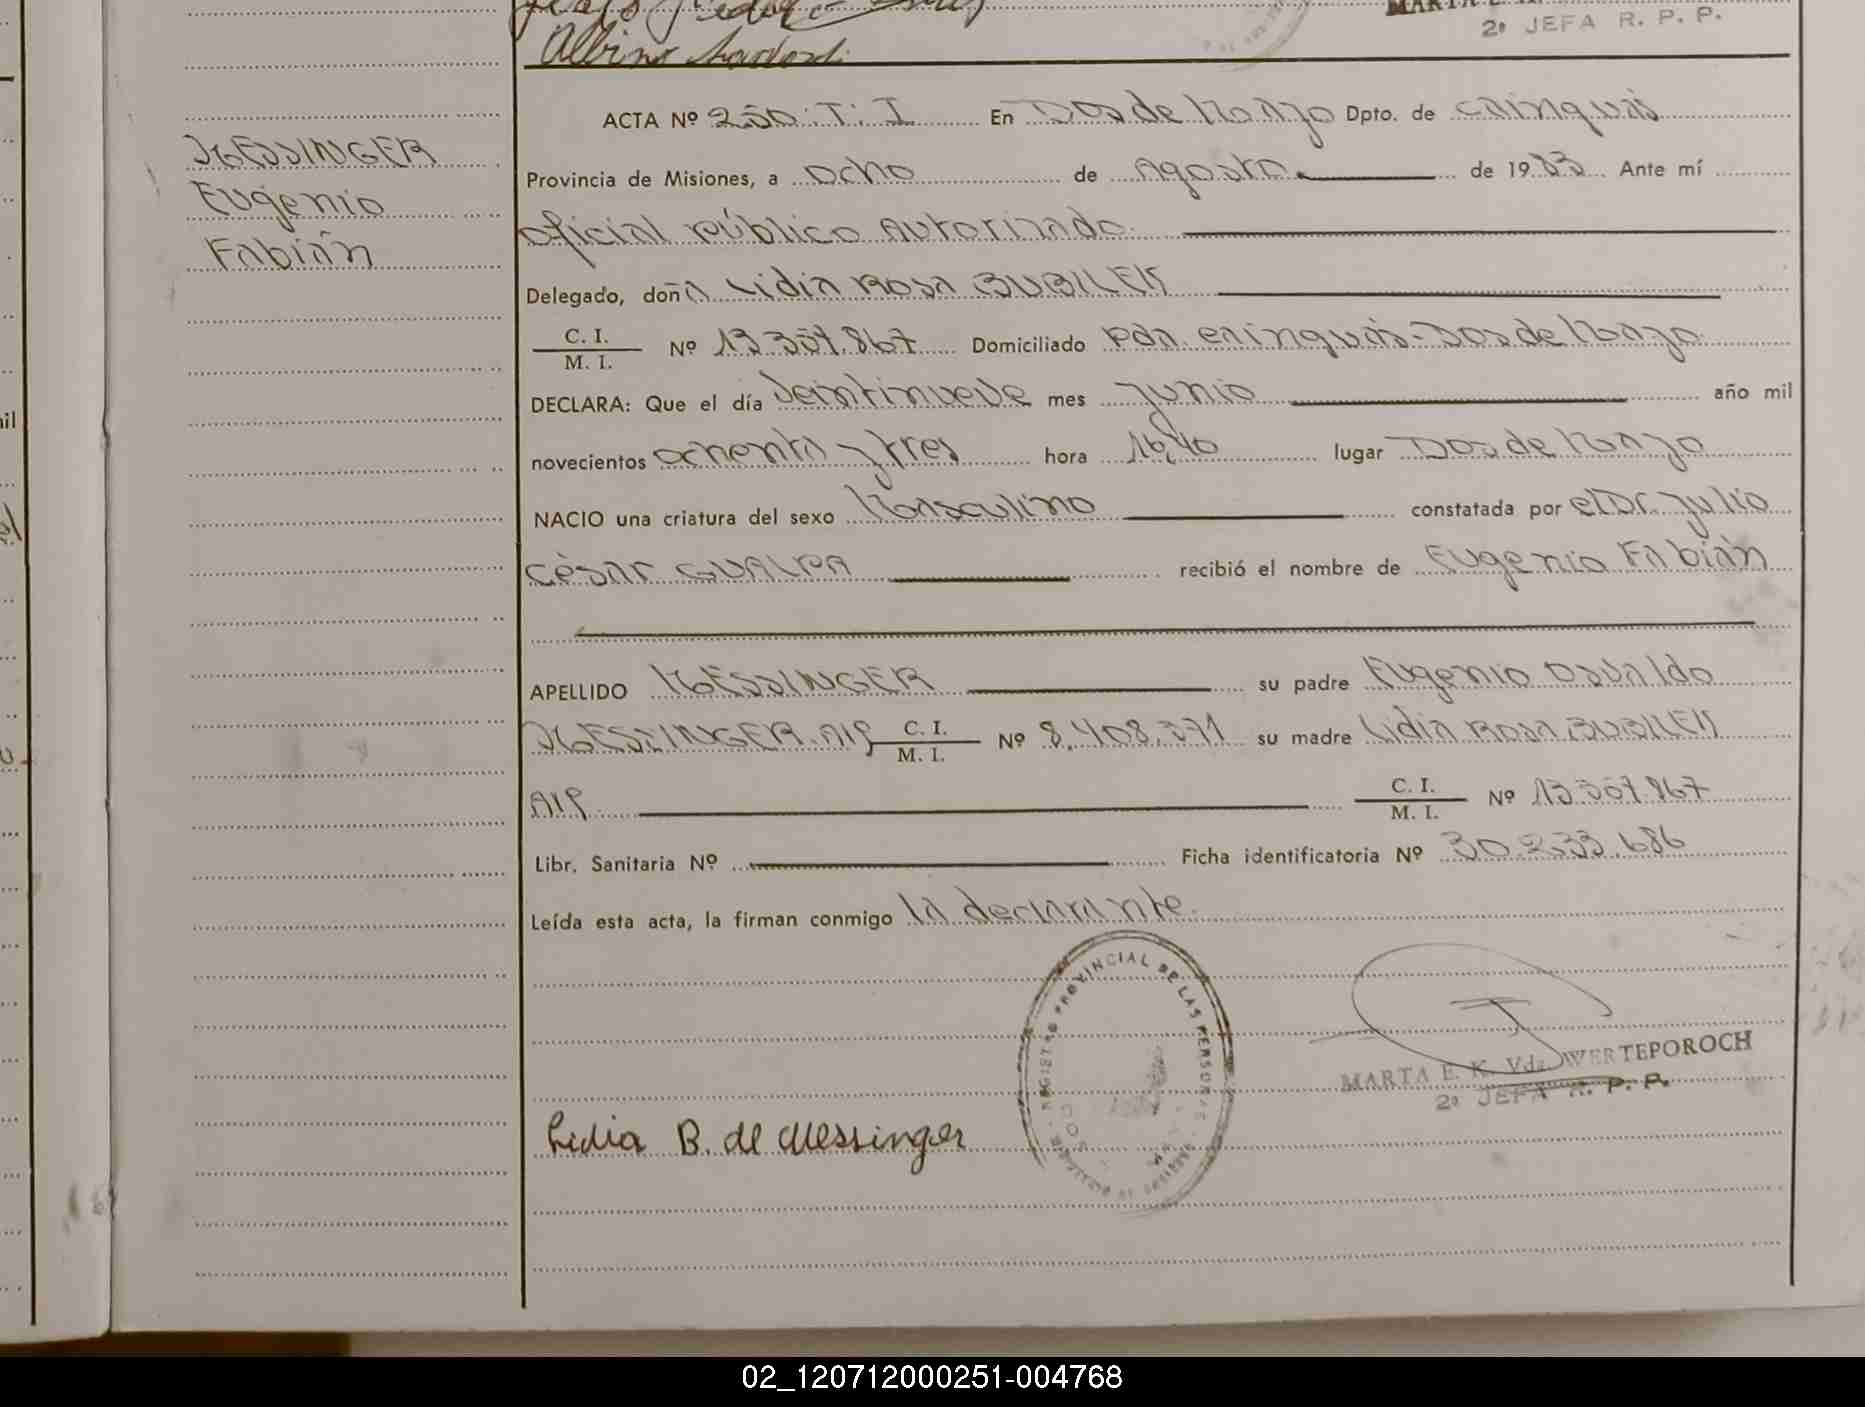 2º JEFA R. P. P.
ACTA Nº 250. T: I En Dos de Mayo Dpto. de Cainguás
MESSINGER
Eugenio
Fabián
Provincia de Misiones, a ocho de Agosto de 1983 Ante mí
oficial público Autorizado
Delegado, doña Lidia Rosa BUBILEK
C. I.
M. I. Nº 13.357.867 Domiciliado Pda. Cainguás-Dos de Mayo
DECLARA: Que el día Veintinueve mes Junio año mil
novecientos ochenta y tres hora 16,40 lugar Dos de Mayo
NACIO una criatura del sexo Masculino constatada por el Dr. Julio
César GUALPA recibió el nombre de Eugenio Fabián
APELLIDO MESSINGER su padre Eugenio Osvaldo
MESSINGER. AIP C. I.
M. I. Nº 8.408.371 su madre Lidia Rosa BUBILEK
AIP. C. I.
M. I. Nº 13.357.867
Libr. Sanitaria Nº Ficha identificatoria Nº 30.233.686
Leída esta acta, la firman conmigo la declarante.
REGISTRO PROVINCIAL DE LAS PERSONAS
MARTA E. K. Vda. WERTEPOROCH
2º JEFA R. P. P.
Lidia B. de Messinger
02_120712000251-004768